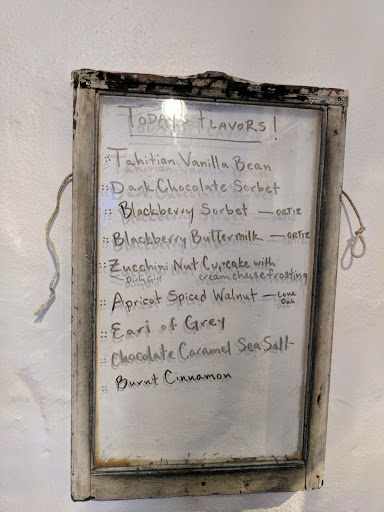 Today's Flavors!
:: Tahitian Vanilla Bean
:: Dark Chocolate Sorbet
Blackberry Sorbet — ORTIZ
:: Blackberry Buttermilk — ORTIZ
:: Zucchini Nut Cupcake with
Dirty Girl cream cheese frosting
:: Apricot Spiced Walnut — Lone Oak
:: Earl of Grey
:: Chocolate Caramel Sea Salt
:: Burnt Cinnamon